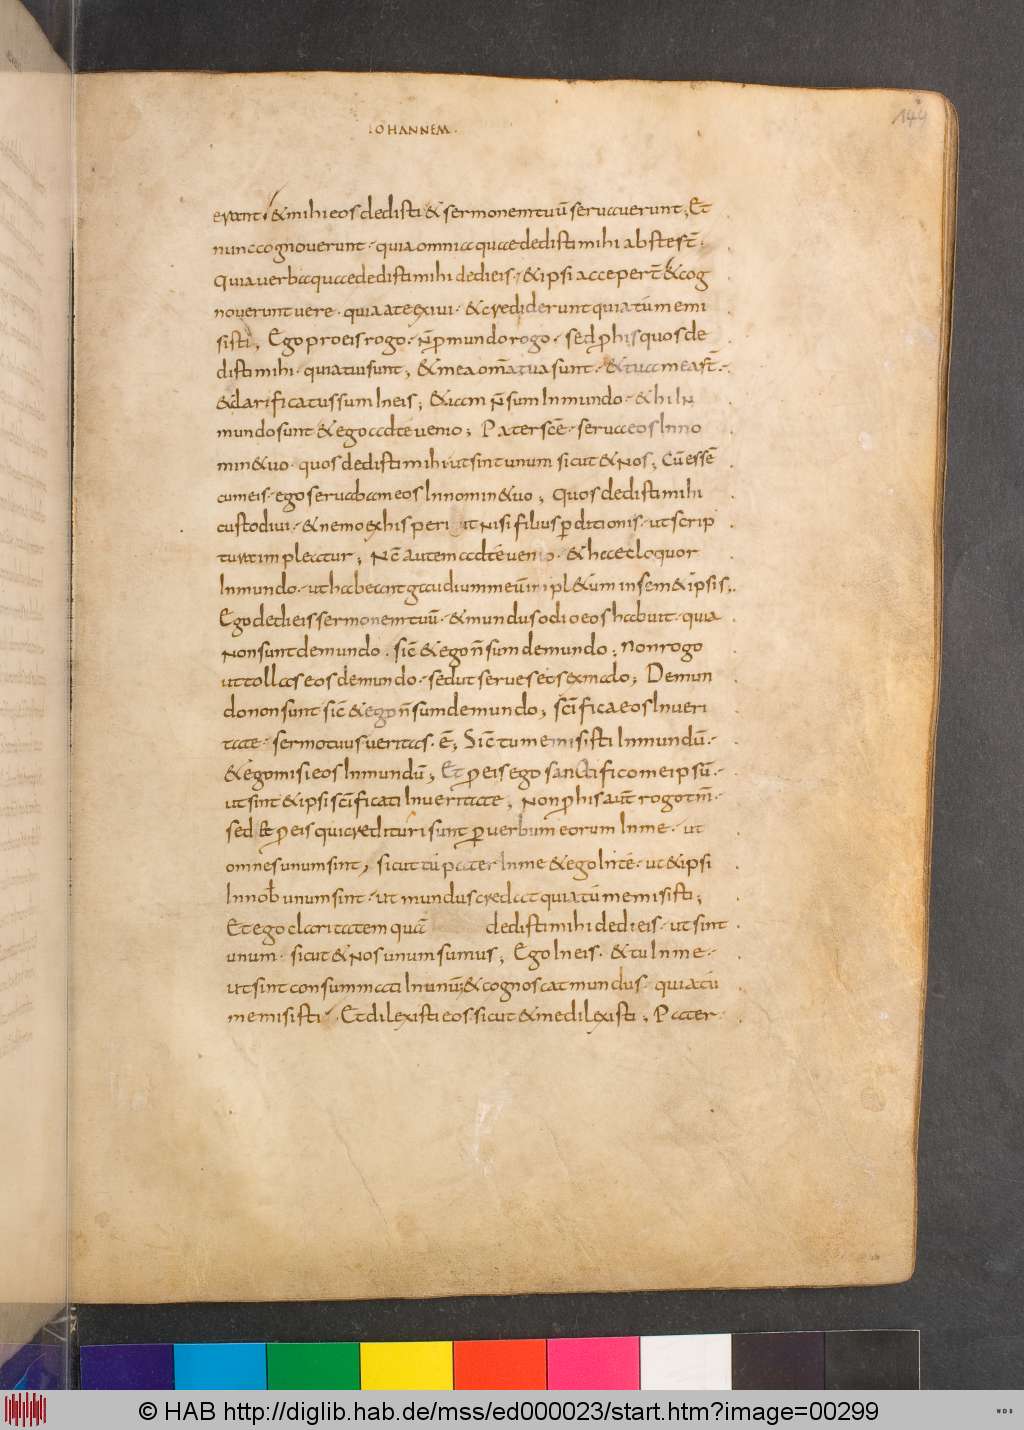 IOHANNEM.
144
erant. & mihi eos dedisti & sermonem tuū servaverunt; Et
nunc cognoverunt. quia omnia quae dedisti mihi abs te sт̄.
Quia verba quae dedisti mihi dedi eis. & ipsi accepert̄ & cog
noverunt vere. quia a te exivi. & crediderunt quia tu me mi
sisti; Ego pro eis rogo. n̄ p mundo rogo. sed p his quos de
disti mihi. quia tui sunt; & mea om̄a tua sunt. & tua mea st̄.
& clarificatus sum In eis; & iam n̄ sum In mundo. & hi IN
mundo sunt & ego ad te venio; Pater scē. serva eos In no
mine tuo. quos dedisti mihi ut sint unum sicut & nos; Cū essē
cum eis. ego servabam eos In nomin& uo; Quos dedisti mihi
custodivi. & nemo ex his peri ut nisi filius p̄ditionis. ut scrip
tura impleatur; Nc̄ autem ad te venio. & haec loquor
In mundo. ut habeant gaudium meū inpl&um in sem&ipsis;
Ego dedi eis sermonem tuū. & mundus odio eos habuit. quia
non sunt de mundo. sic̄ & ego n̄ sum de mundo; Non rogo
ut tollas eos de mundo. sed ut serves eos ex malo; De mun
do non sunt sic̄ & ego n̄ sum de mundo; sc̄ifica eos In veri
tate. sermo tuus veritas. ē; Sic̄ tu me misisti In mundū.
& ego misi eos In mundū; Et p eis ego sanctifico me ipsū.
ut sint & ipsi sc̄ificati In veritate; Non p his aut̄ rogo tm̄.
sed & p eis qui credituri sunt p̄ verbum eorum In me. ut
omnes unum sint; sicut tu pater In me & ego In te. ut & ipsi
In nob̄ unum sint. ut mundus credat quia tu me misisti;
Et ego claritatem quā dedisti mihi dedi eis. ut sint
unum. sicut & nos unum sumus; Ego In eis. & tu In me.
ut sint consummati In unū; & cognoscat mundus. quia tu
me misisti. Et dilexisti eos. sicut & me dilexisti; Pater.
© HAB http://diglib.hab.de/mss/ed000023/start.htm?image=00299